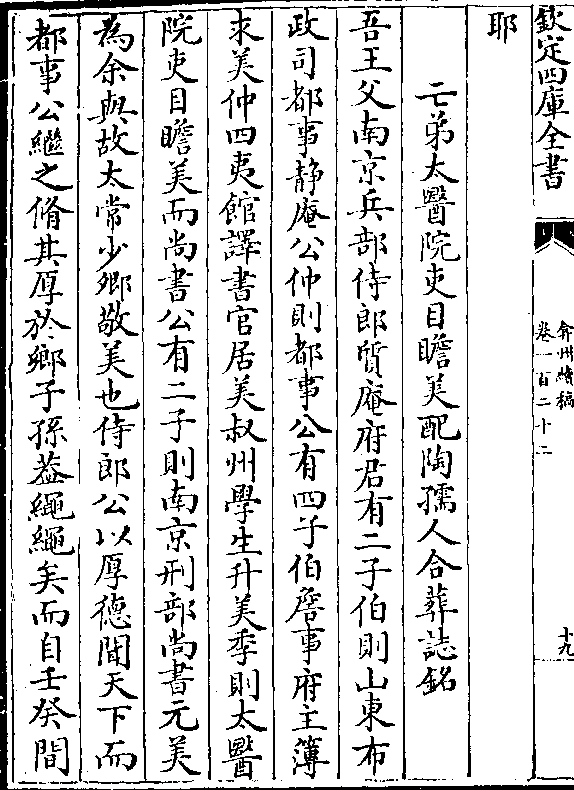 欽定四庫全書
弇州續稿
卷一百二十二
十九
耶
亡弟太醫院吏目瞻美配陶孺人合葬誌銘
吾王父南京兵部侍郎質庵府君有二子伯則山東布
政司都事静庵公仲則都事公有四子伯詹事府主簿
求美仲四夷館譯書官居美叔州學生升美季則太醫
院吏目瞻美而尚書公有二子則南京刑部尚書元美
為余與故太常少卿敬美也侍郎公以厚德聞天下而
都事公繼之脩其厚於鄉子孫葢繩繩矣而自壬癸間